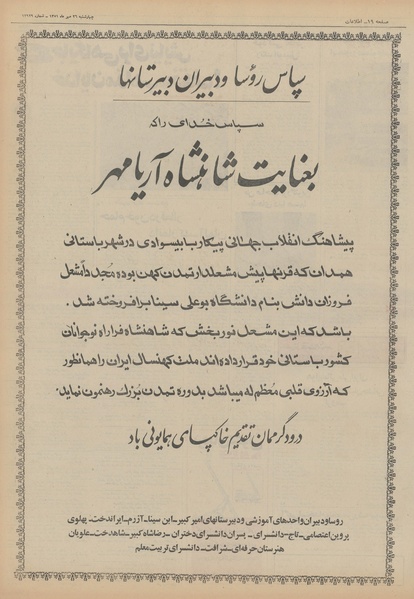 صفحه ۱۶ـ اطلاعات
چهارشنبه ۲۶ مهر ماه ۱۳۵۱ ـ شماره
سپاس رؤسا و دبیران دبیرستانها
سپاس خدای را که
بعنایت شاهنشاه آریامهر
پیشاهنگ انقلاب جهانی پیکار با بیسوادی در شهر باستانی
همدان که قرنها پیش مشعلدار تمدن کهن بوده مجددا مشعل
فروزان دانش بنام دانشگاه بوعلی سینا برافروخته شد .
باشد که این مشعل نوربخش که شاهنشاه فرا راه نوجوانان
کشور باستانی خود قرار داده اند ملت کهنسال ایران را همانطور
که آرزوی قلبی معظم له میباشد بدوره تمدن بزرگ رهنمون نماید.
درود گرممان تقدیم خاکپای همایونی باد
روسا و دبیران واحدهای آموزشی و دبیرستانهای امیرکبیر ـ ابن سینا ـ آزرم ـ ایراندخت ـ پهلوی
پروین اعتصامی ـ تاج ـ دانشسرای پسران دانشسرای دختران ـ رضاشاه کبیر ـ شاهدخت ـ علویان
هنرستان حرفه ای ـ شرافت ـ دانشسرای تربیت معلم